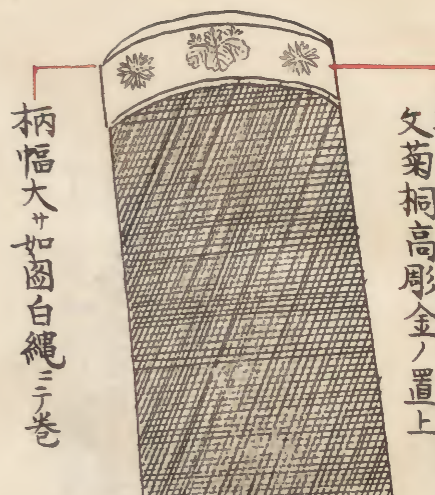 文菊桐高彫金ノ置上
柄幅大サ如図白縄ニテ巻